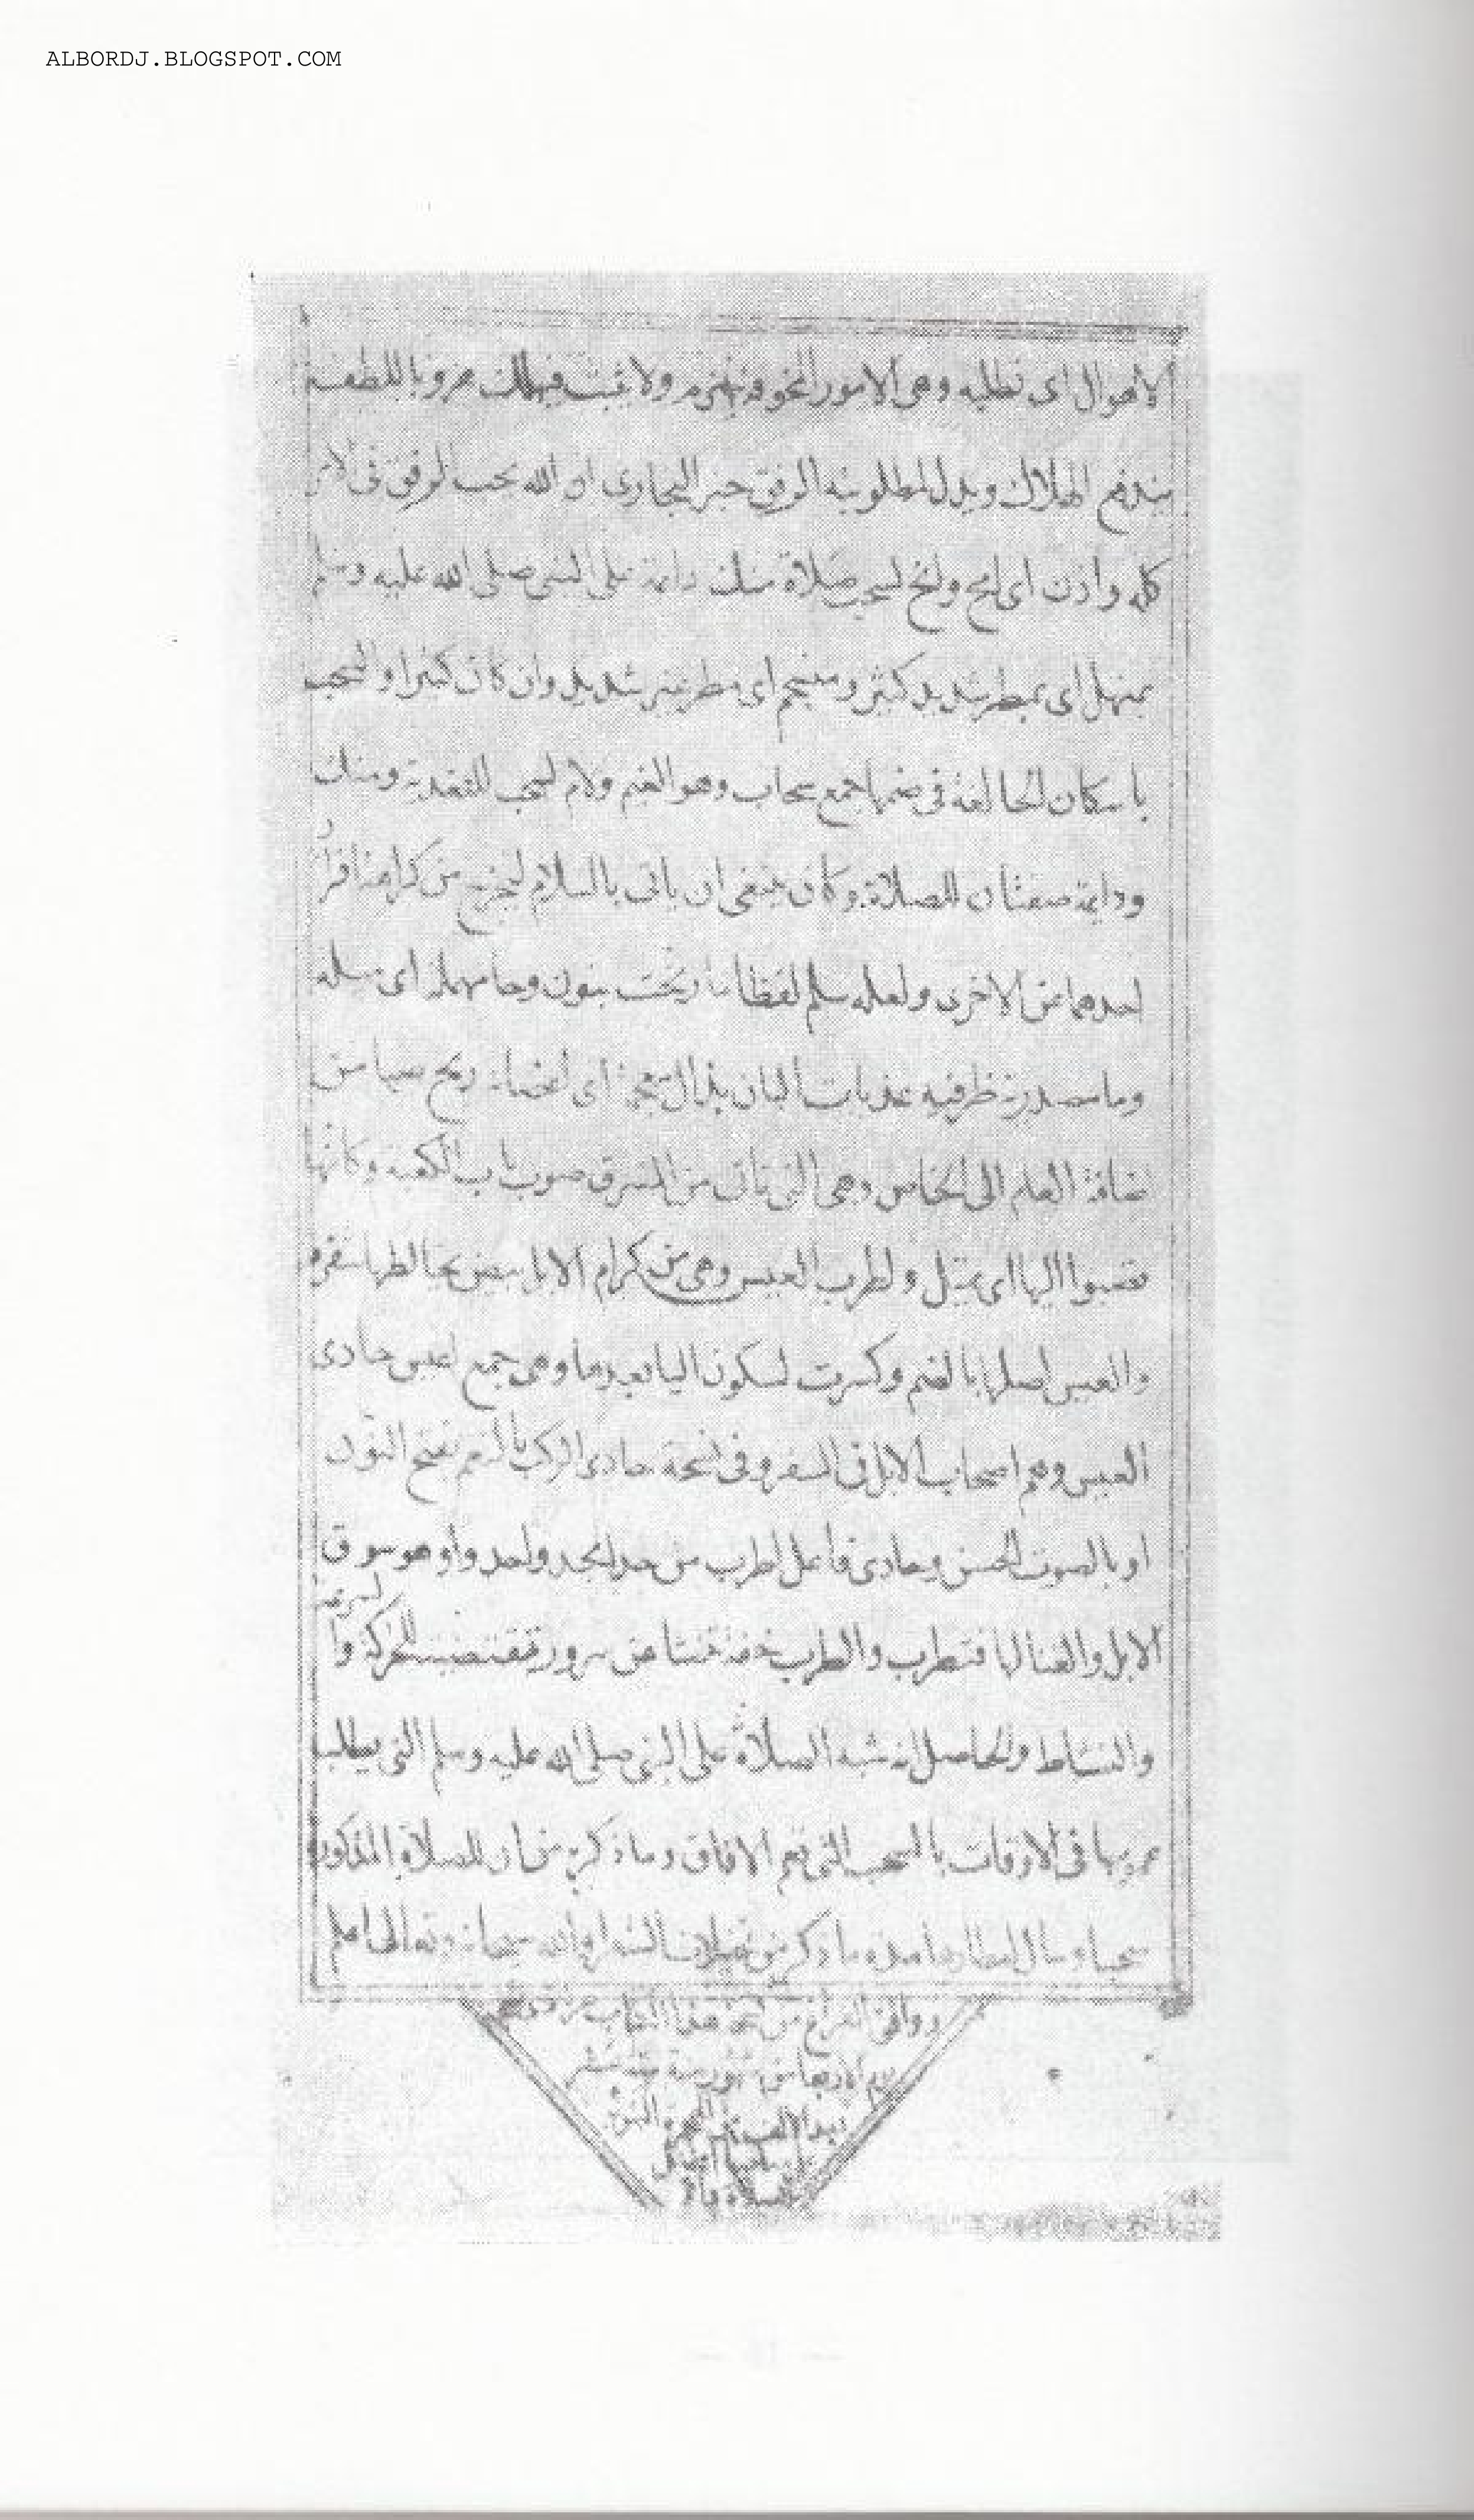 ALBORDJ.BLOGSPOT.COM
الاهوال اى تطلبه وهى الامور المخوفة ينهزم ولا يثبت فيهلك مقرونا باللطف
يندفع الهلاك ويدل لمطلوبية الرفق خبر البخارى ان الله يحب الرفق فى الامر
كله واذن اى امح لسحب صلاة منك دائمة على النبى صلى الله عليه وسلم
بمنهل اى بمطر شديد كثير ومنسجم اى مطر غير شديد وان كان كثيرا والسحب
باسكان الحا لغة فى ضمها جمع سحاب وهو الغيم ولام لسحب للتعدية ومنك
ودايمة صفتان للصلاة وكان ينبغى ان ياتى بالسلام ليخرج من كراهة افراد
احدهما عن الاخرى ولعله سلم لفظا ما رنحت بنون وحا مهملة اى ميله
وما مصدرية ظرفية عذبات البان بذال معجمة اى اغصانه ريح صبا من
اضافة العام الى الخاص وهى التى تاتى من المشرق صوب باب الكعبة وكانها
تصبوا اليها اى تميل واطرب العيس وهى من كرام الابل بيض يخالطها شقرة
والعيس اصلها بالضم وكسرت لسكون اليا بعدها وهى جمع اعيس حادى
العيس وهم اصحاب الابل فى السفر وفى نسخة حادى الركب بالنغم بفتح النون
او بالصوت الحسن وحادى فاعل اطرب من حدا يحدو واحد وا وهو سوق
الابل والغنا لها فتطرب والطرب خفة تنشا عن سرور فتقتضيت الحركة وا
لسرعة
والنشاط والحاصل انه شبه الصلاة على النبى صلى الله عليه وسلم التى يطلب
عمومها فى الاوقات بالسحب التى تعم الافاق وما ذكر من ان للصلاة المذكورة
سحبا وسال امطارها هذه ما ذكر من الشعرا والله سبحانه وتعالى اعلم
ووافق الفراغ من نسخة هذا الكتاب
يوم الاربعا
بعد الالف من الهجرة النبوية
على صاحبها افضل
الصلاة